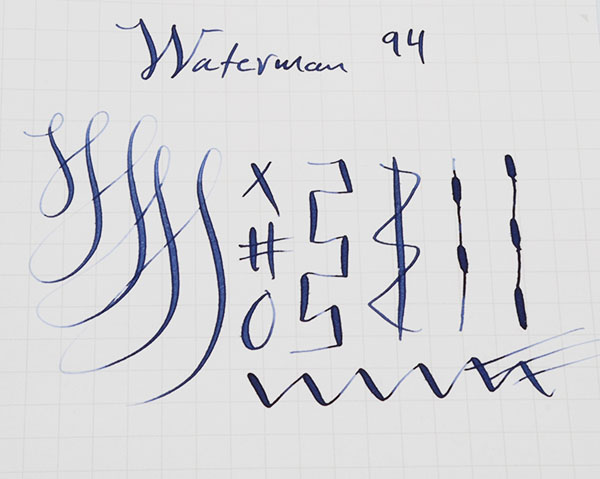 Waterman 94
X
#
O